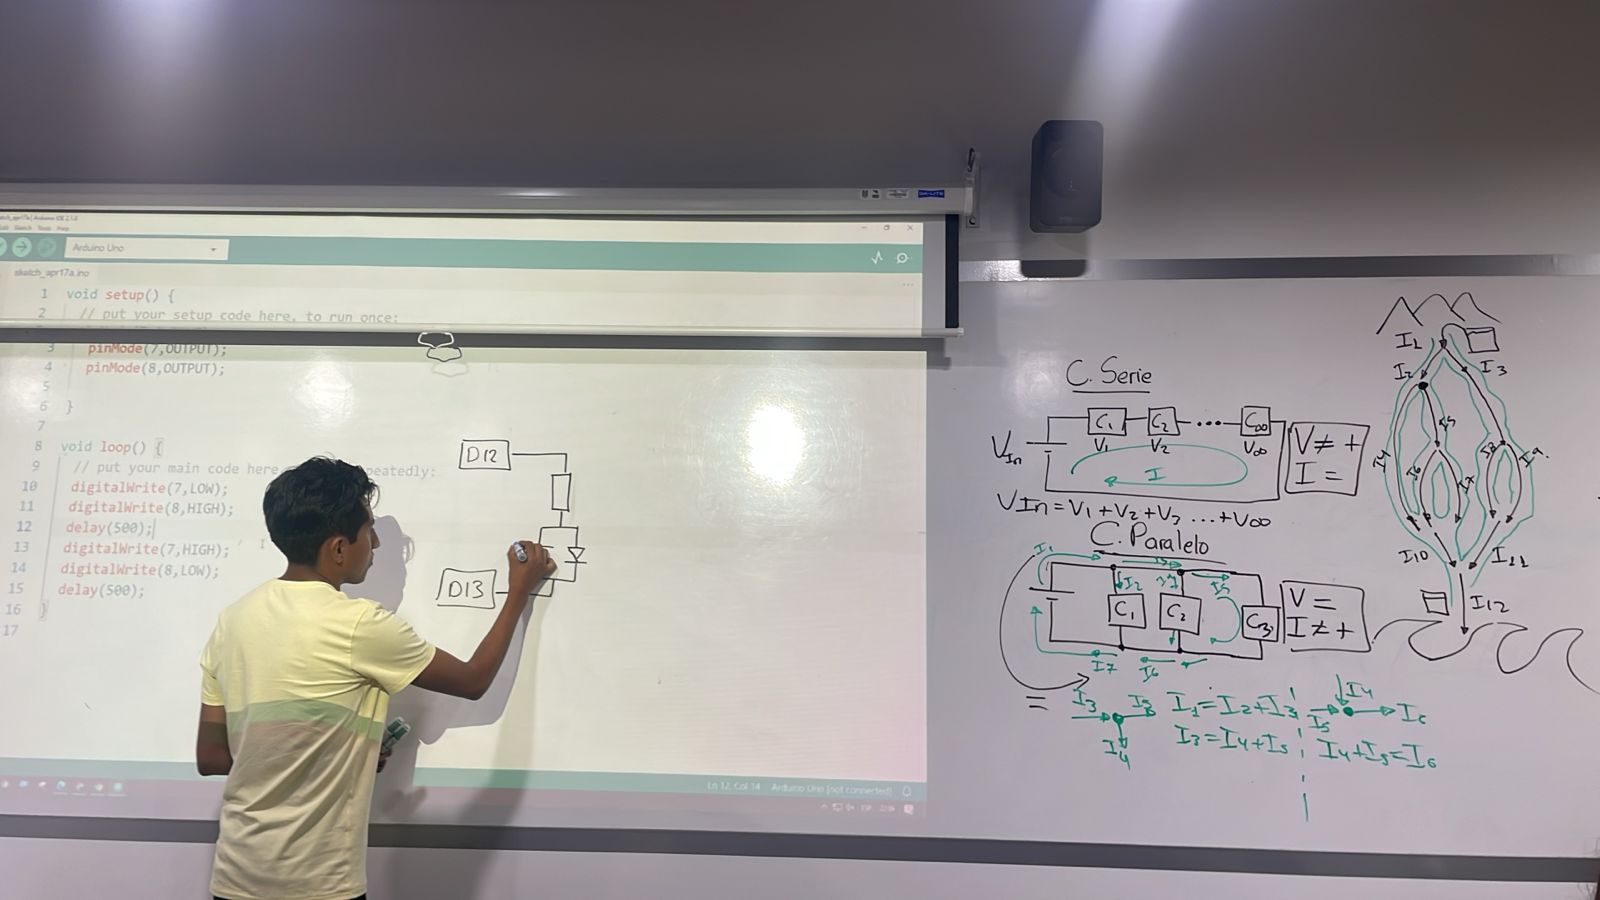 sketch_apr17a | Arduino IDE 2.1.0
Sketch Tools Help
Arduino Uno
sketch_apr17a.ino
1 void setup() {
2 // put your setup code here, to run once:
3 pinMode(7,OUTPUT);
4 pinMode(8,OUTPUT);
5
6 }
7
8 void loop() {
9 // put your main code here peatedly:
10 digitalWrite(7,LOW);
11 digitalWrite(8,HIGH);
12 delay(500);
13 digitalWrite(7,HIGH);
14 digitalWrite(8,LOW);
15 delay(500);
16 }
17
Ln 12, Col 14 Arduino Uno [not connected]
DA-LITE
D12
D13
C. Serie
VIn
C1 C2 ... C∞
V1 V2 V∞
I
V ≠ +
I =
VIn = V1 + V2 + V3 ... + V∞
C. Paralelo
I1
I2 I5
C1 C2 C3
I7 I6
V =
I ≠ +
=
I3 I5
I4
I1 = I2 + I3
I3 = I4 + I5
I4
I5 I6
I4 + I5 = I6
I1
I2 I3
I5
I4 I6 I7 I8 I9
I10 I11
I12